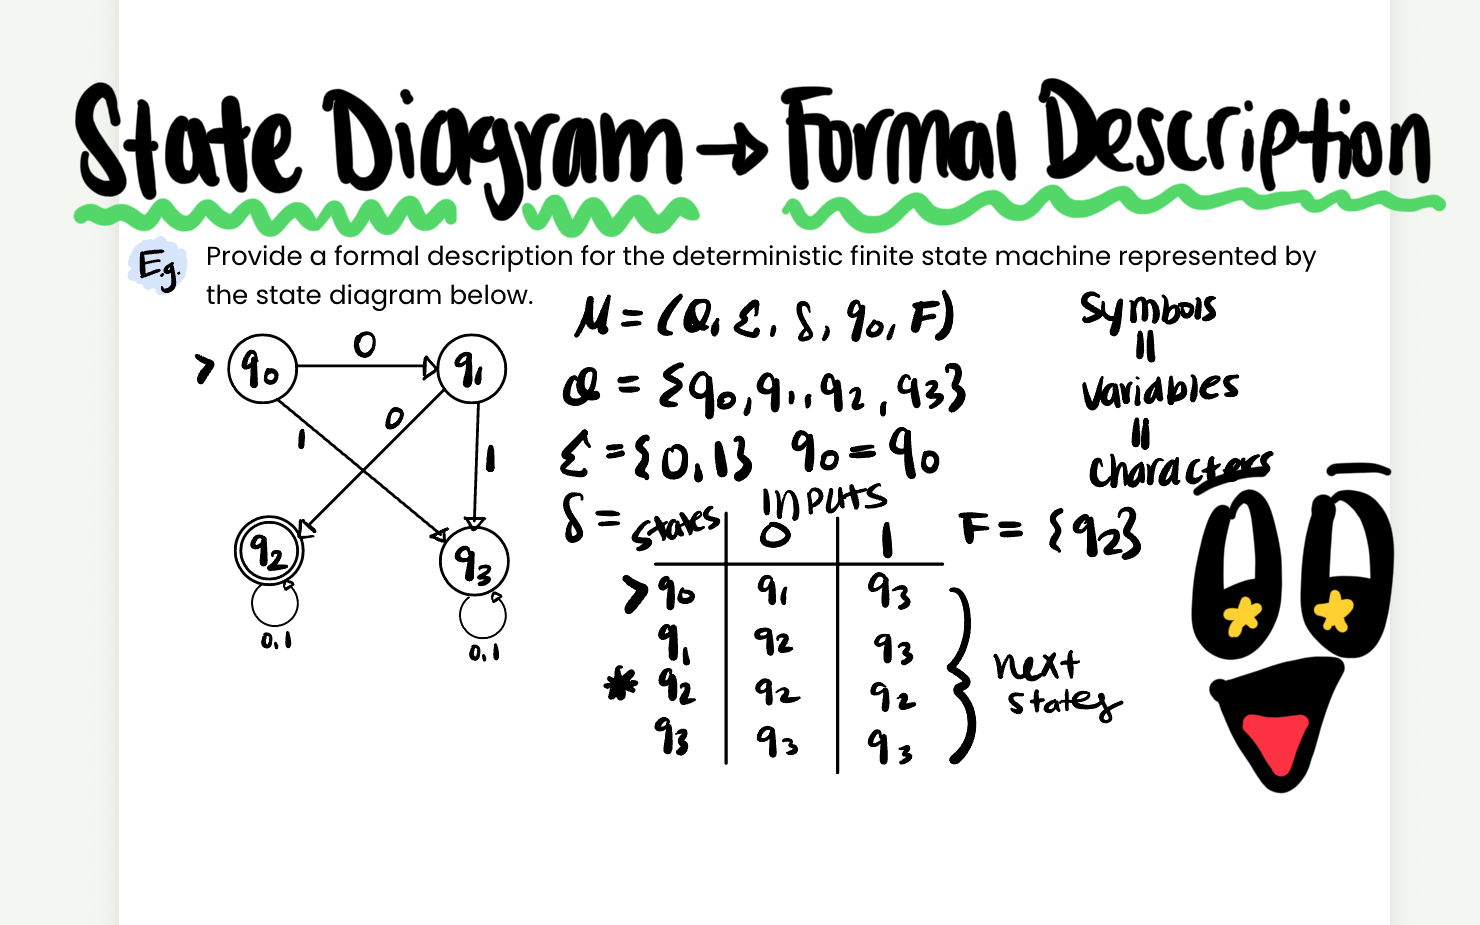 State Diagram → Formal Description
E.g.
Provide a formal description for the deterministic finite state machine represented by
the state diagram below.
M = (Q, Σ, δ, q0, F)
Q = {q0, q1, q2, q3}
Σ = {0, 1} q0 = q0
δ =
states | inputs
0 | 1
> q0 | q1 | q3
q1 | q2 | q3
* q2 | q2 | q2
q3 | q3 | q3
next
states
F = {q2}
Symbols
=
Variables
=
Characters
> q0
0
q1
1
0
1
q2
q3
0,1
0,1